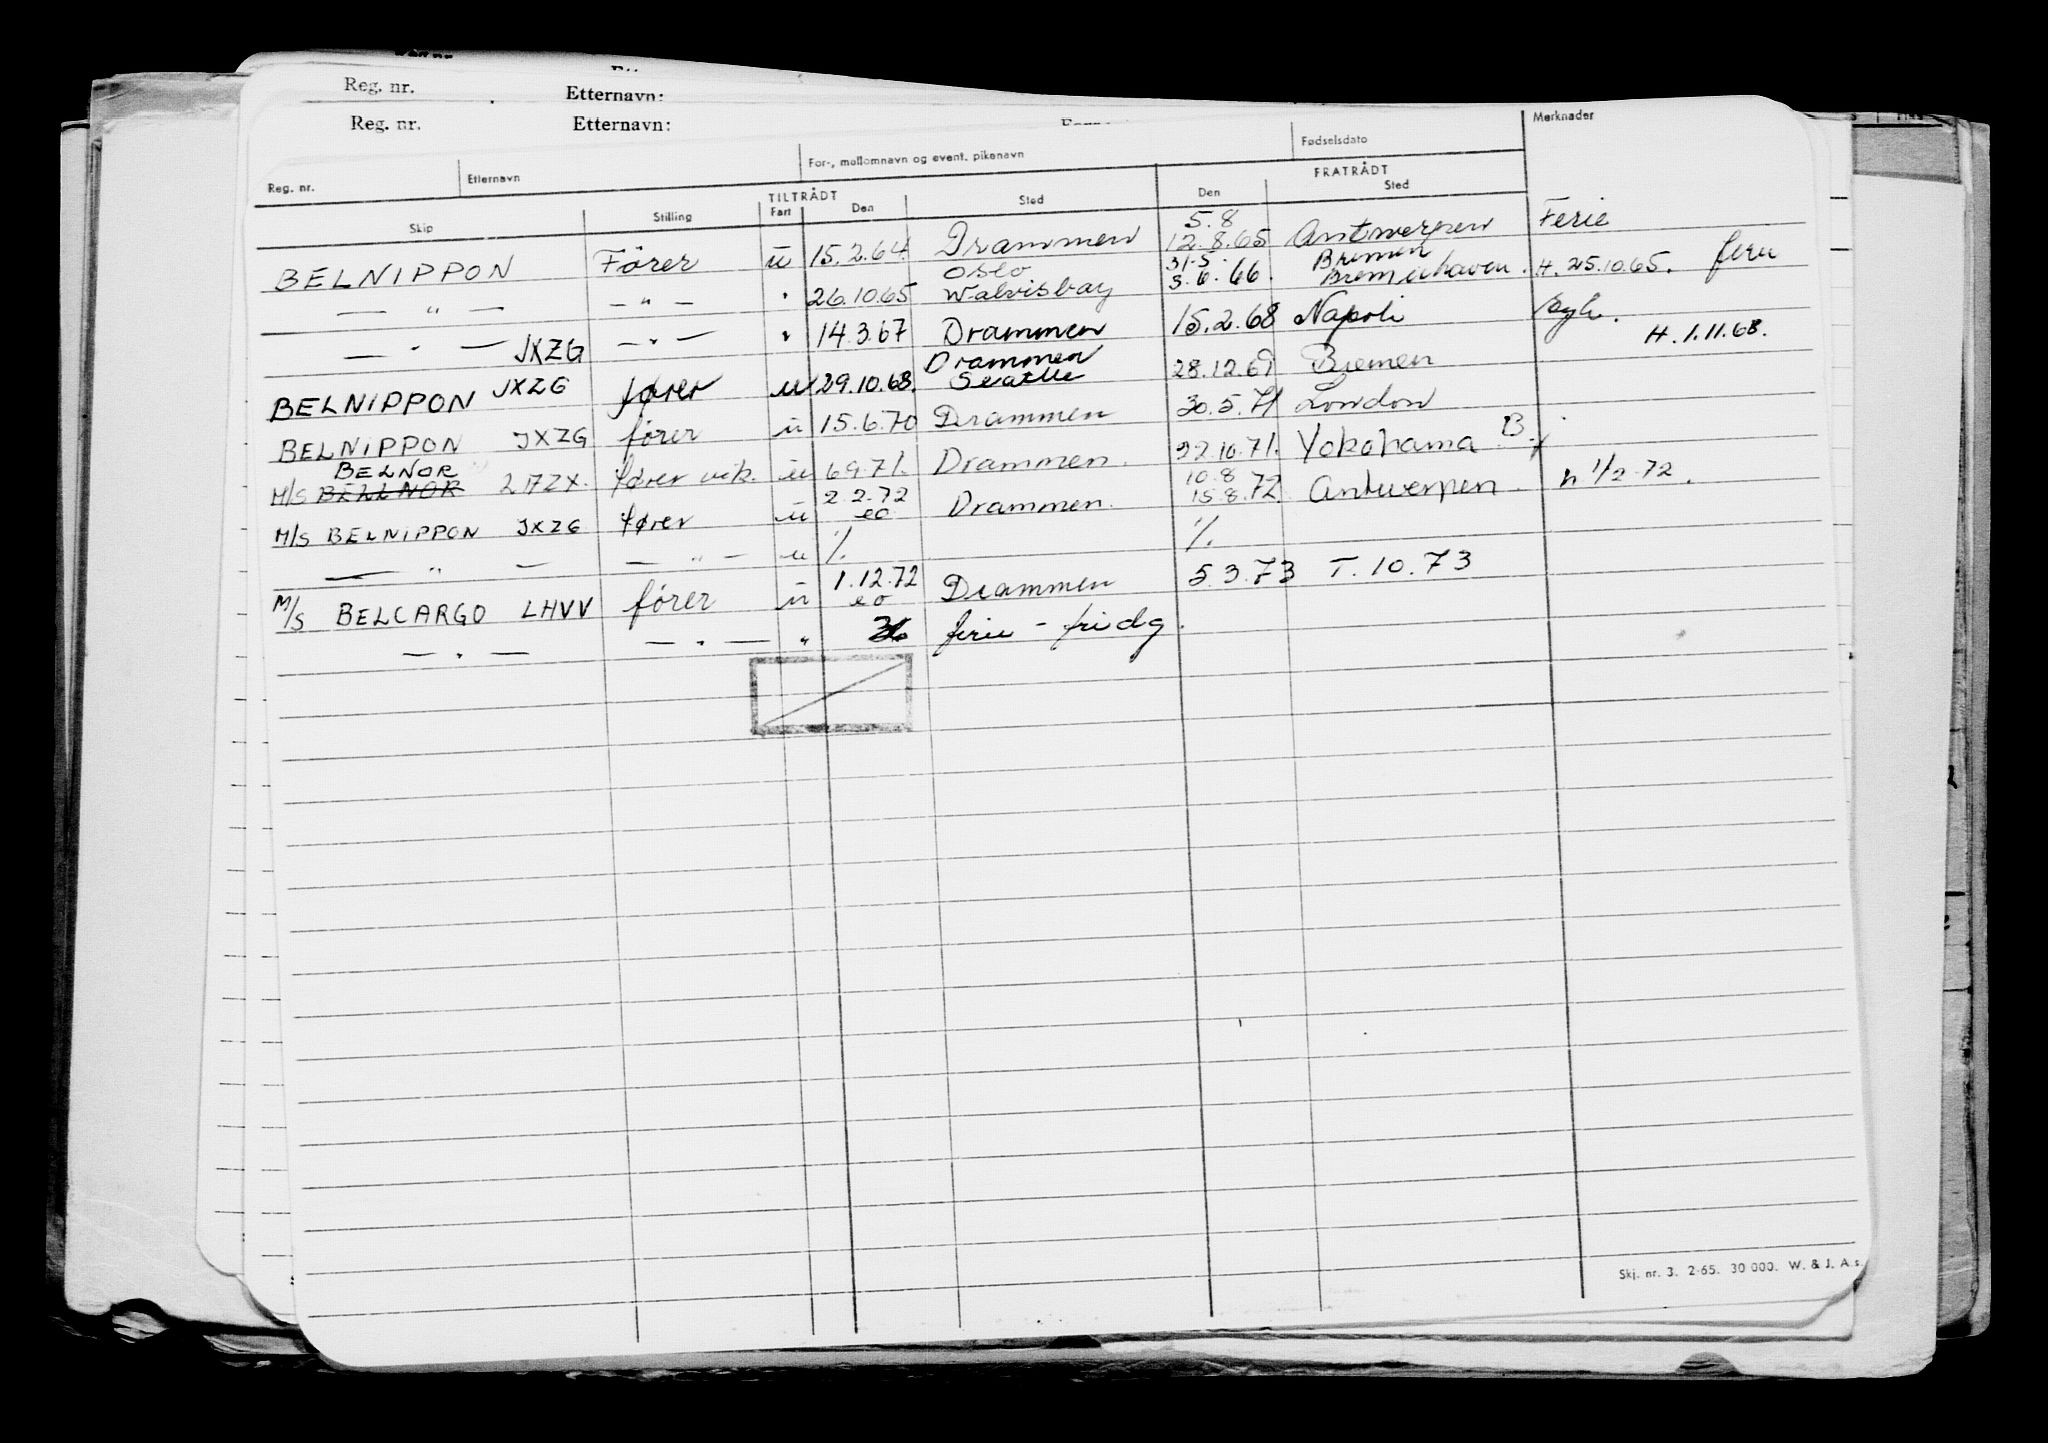 Reg. nr. Etternavn:
Reg. nr. Etternavn:
Reg. nr. Etternavn For-, mellomnavn og event. pikenavn Fødselsdato Merknader
TILTRÅDT FRATRÅDT
Skip Stilling Fart Den Sted Den Sted
5.8
BELNIPPON Fører u 15.2.64. Drammen 12.8.65 Antwerpen Ferie
Oslo 31.5. Bremen
— " — — " — " 26.10.65 Walvisbay 3.6.66. Bremerhaven. H. 25.10.65. ferie
— " — JXZG — " — " 14.3.67 Drammen 15.2.68 Napoli
Drammen H. 1.11.68.
BELNIPPON JXZG fører u 29.10.68. Seattle 28.12.69 Bremen
BELNIPPON JXZG fører u 15.6.70 Drammen 30.5.71 London
BELNOR
M/S BELLNOR fører vik. u 6.9.71. Drammen. 22.10.71. Yokohama B
2.2.72 10.8
M/S BELNIPPON JXZG fører u eo Drammen. 15.8.72 Antwerpen. h 1/2.72.
— " — — " — u %. %.
1.12.72
M/S BELCARGO LHVV fører u eo Drammen 5.3.73 T. 10.73
— " — — " — " ferie - fridg.
Skj. nr. 3. 2-65. 30 000. W. & J. A.s.